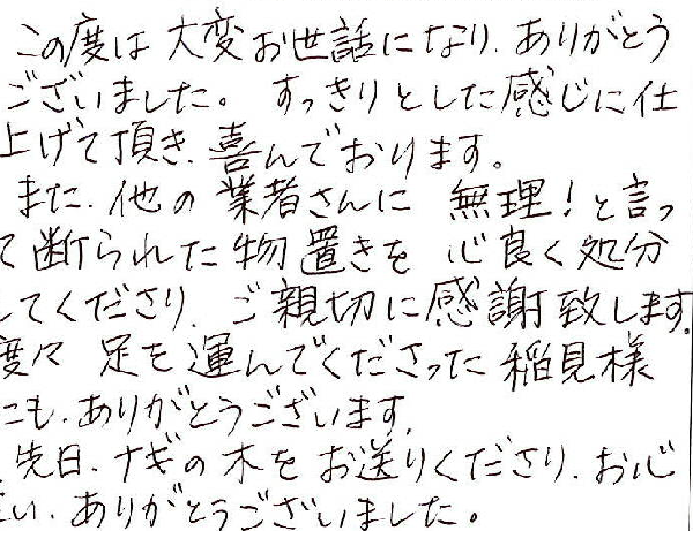 この度は 大変お世話になり、ありがとう
ございました。 すっきりとした感じに仕
上げて頂き、喜んでおります。
また、他の業者さんに 無理!と言っ
て断られた物置きを 心良く処分
してくださり、ご親切に感謝致します。
度々 足を運んでくださった 稲見様
にも、ありがとうございます。
先日、ナギの木をお送りくださり、お心
遣い、ありがとうございました。